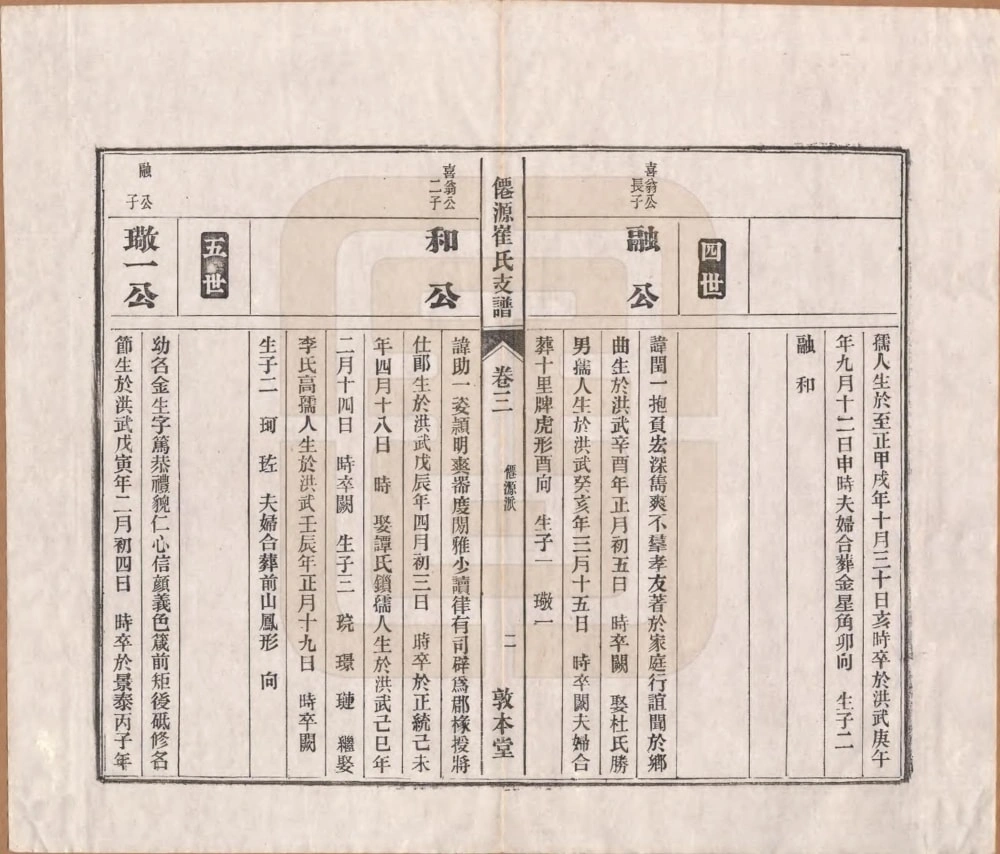 孺人生於至正甲戌年十月三十日亥時卒於洪武庚午
年九月十二日申時夫婦合葬金星角卯向 生子二
融 和
四世
喜翁公
長子
融 公
諱閏一抱負宏深雋爽不羣孝友著於家庭行誼聞於鄉
曲生於洪武辛酉年正月初五日 時卒闕 娶杜氏勝
男孺人生於洪武癸亥年三月十五日 時卒闕夫婦合
葬十里牌虎形酉向 生子一 璥一
僊源崔氏支譜
卷三
僊源派
二
敦本堂
喜翁公
二子
和 公
諱助一姿頴明爽器度閒雅少讀律有司辟爲郡椽授將
仕郎生於洪武戊辰年四月初三日 時卒於正統己未
年四月十八日 時 娶譚氏鎖孺人生於洪武己巳年
二月十四日 時卒闕 生子三 琓 環 璉 繼娶
李氏高孺人生於洪武壬辰年正月十九日 時卒闕
生子二 珂 珤 夫婦合葬前山鳳形 向
五世
融公
子
璥一公
幼名金生字篤恭禮貌仁心信顔義色箴前矩後砥修名
節生於洪武戊寅年二月初四日 時卒於景泰丙子年